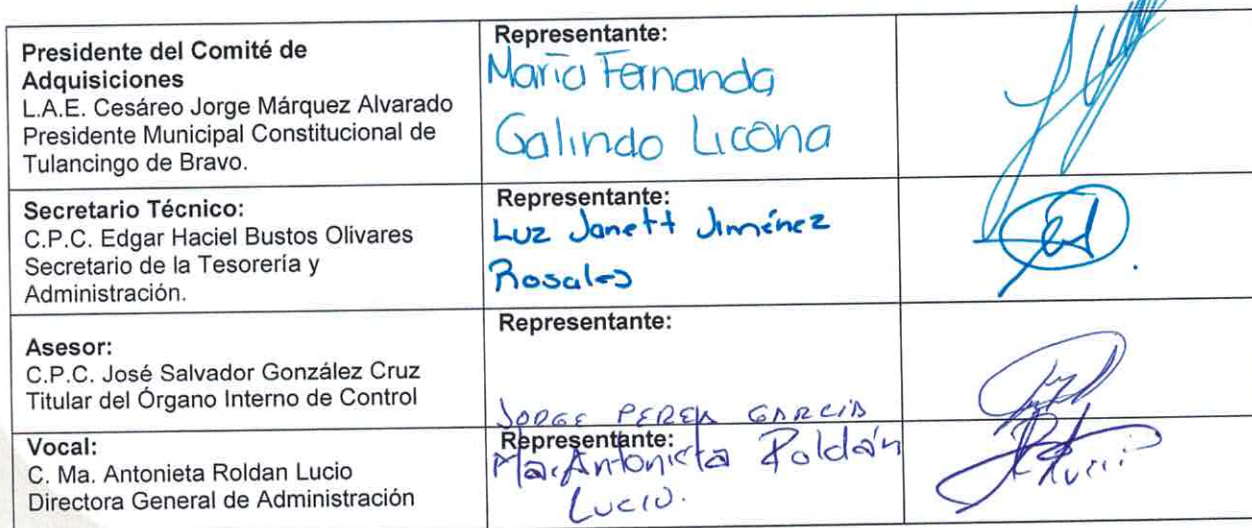 Presidente del Comité de
Adquisiciones
L.A.E. Cesáreo Jorge Márquez Alvarado
Presidente Municipal Constitucional de
Tulancingo de Bravo.
Representante:
María Fernanda
Galindo Licona
Secretario Técnico:
C.P.C. Edgar Haciel Bustos Olivares
Secretario de la Tesorería y
Administración.
Representante:
Luz Janett Jiménez
Rosales
Asesor:
C.P.C. José Salvador González Cruz
Titular del Órgano Interno de Control
Representante:
JORGE PEREA GARCIA
Vocal:
C. Ma. Antonieta Roldan Lucio
Directora General de Administración
Representante:
Ma. Antonieta Roldán
Lucio.